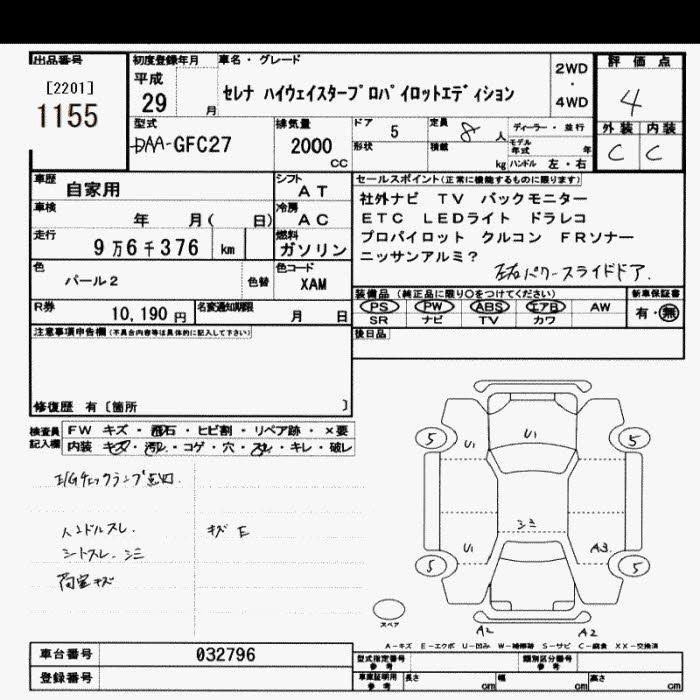 出品番号
[2201]
1155
初度登録年月
平成
29 月
車名・グレード
セレナ ハイウェイスタープロパイロットエディション
2WD
・
4WD
評価点
4
外装 内装
C C
型式
DAA-GFC27
排気量
2000
CC
ドア 5
形状
定員 8 人
積載 kg
ディーラー・並行
モデル年式 年
ハンドル 左・右
車歴
自家用
シフト
AT
車検
年 月( 日)
冷房
AC
走行
9万6千376 km
燃料
ガソリン
色
パール2
色替
色コード
XAM
R券
10,190円
名変通知期限
月 日
セールスポイント(正常に機能するものに限ります)
社外ナビ TV バックモニター
ETC LEDライト ドラレコ
プロパイロット クルコン FRソナー
ニッサンアルミ?
左右パワースライドドア.
装備品(純正品に限り○をつけてください)
PS PW ABS エアB AW
SR ナビ TV カワ
新車保証書
有・無
後日品
注意事項申告欄(不具合内容等は具体的に記入して下さい)
修復歴 有〔箇所 〕
検査員記入欄
FW キズ・飛石・ヒビ割・リペア跡・×要
内装 キズ・汚レ・コゲ・穴・スレ・キレ・破レ
E/Gチェックランプ点灯.
ハンドルスレ. キズE
シートスレ.シミ
荷室キズ
5 U1 U1 5
シミ
U1 A3
5 5
スペア
A2 A2
A−キズ E−エクボ U−凹み W−補修跡 S−サビ C−腐食 XX−交換済
車台番号 032796
登録番号
型式指定番号
参考
類別区分番号
参考
車庫証明用
参考
長さ cm 幅 cm 高さ cm